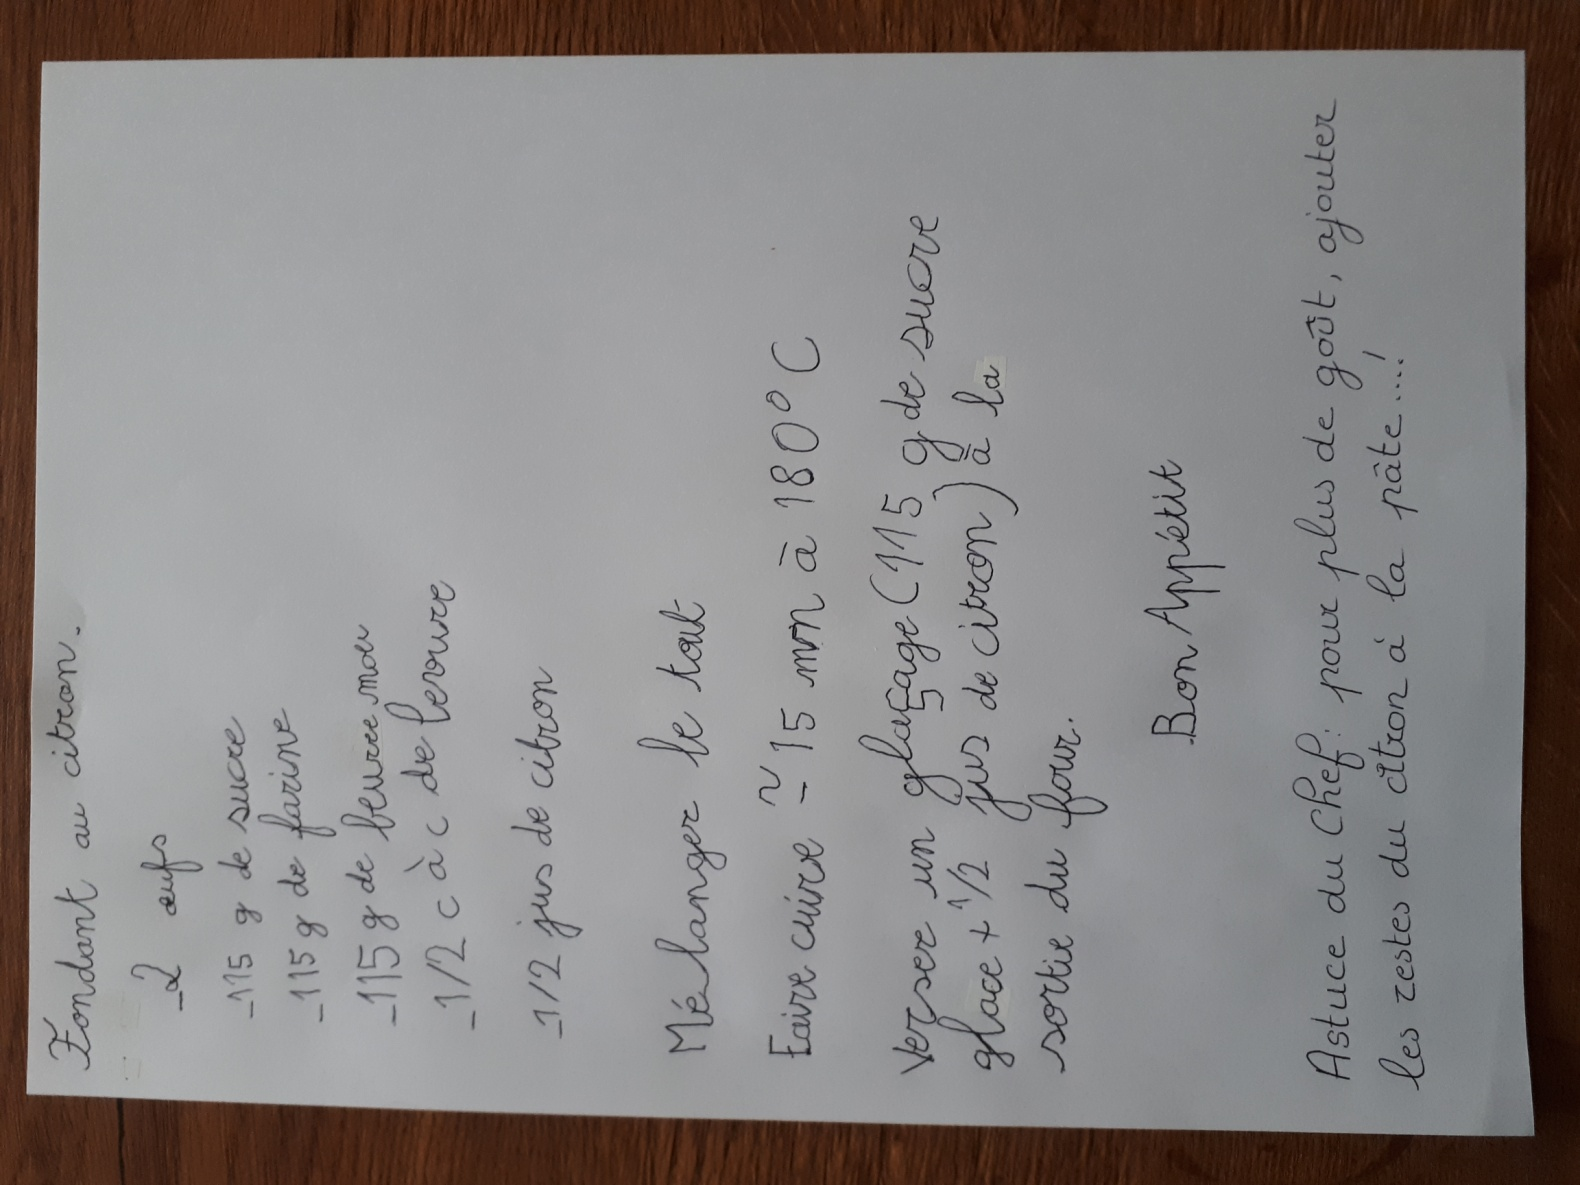 Fondant au citron.
- 2 œufs
- 115 g de sucre
- 115 g de farine
- 115 g de beurre mou
- 1/2 c à c de levure
- 1/2 jus de citron
Mélanger le tout
Faire cuire ≃ 15 mn à 180°C
Verser un glaçage (115 g de sucre
glace + 1/2 jus de citron) à la
sortie du four.
Bon Appétit
Astuce du Chef : pour plus de goût, ajouter
les zestes du citron à la pâte....!